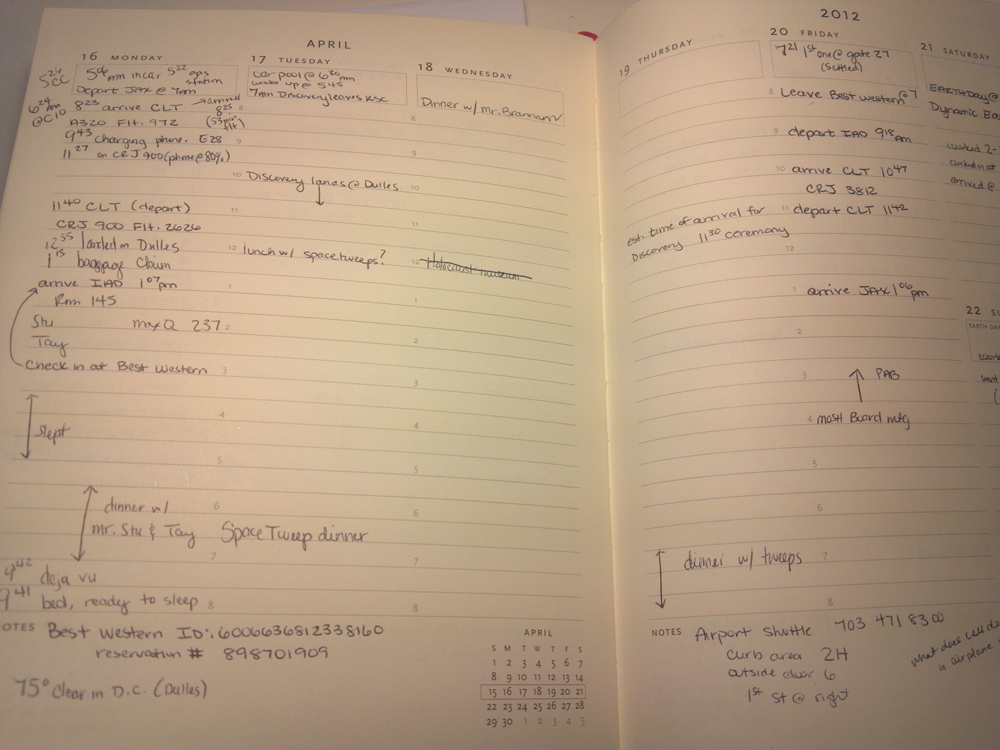 APRIL
16 MONDAY
5:24 CC
5:06 Am in car 5:22 gas station
Depart JAX @ 7am
6:24 Am @C10
8:23 arrive CLT → arrived 8:25
A320 Flt. 972 (53 min flt)
9:43 charging phone. E28
11:27 on CRJ 900 (phone @ 80%)
11:40 CLT (depart)
CRJ 900 Flt. 2626
12:55 landed in Dulles
1:15 baggage Claim
arrive IAD 1:07pm
Rm 145
Stu max Q 237
Tay
Check in at Best Western
slept
dinner w/
mr. Stu & Tay Space Tweep dinner
9:42 deja vu
9:41 bed, ready to sleep
17 TUESDAY
car pool @ 6:30 Am
wake up @ 5:45
7am Discovery leaves KSC
8
9
10 Discovery lands @ Dulles
11
12 lunch w/ spacetweeps?
1
2
3
4
5
6
7
8
18 WEDNESDAY
Dinner w/ Mr. Brannan
8
9
10
11
12 Holocaust museum
1
2
3
4
5
6
7
8
NOTES Best Western ID: 6006636812338160
reservation # 898701909
75° Clear in D.C. (Dulles)
APRIL
S M T W T F S
1 2 3 4 5 6 7
8 9 10 11 12 13 14
15 16 17 18 19 20 21
22 23 24 25 26 27 28
29 30 1 2 3 4 5
2012
19 THURSDAY
est. time of arrival for
Discovery 11:30 ceremony
20 FRIDAY
7:21 1st one @ gate 27
(settled)
8 Leave Best Western @ 7
9 depart IAD 9:18 am
10 arrive CLT 10:47
CRJ 3812
11 depart CLT 11:42
12
1 arrive JAX 1:06 pm
2
3 PAB
4 mosH Board mtg
5
6
7 dinner w/ tweeps
8
21 SATURDAY
EARTH Day @
Dynamic
worked 2-
clocked in at
arrived @
22
EARTH DAY
NOTES Airport Shuttle 703 471 8300
curb area 2H
outside door 6
1st st @ right
what does cell
in airplane